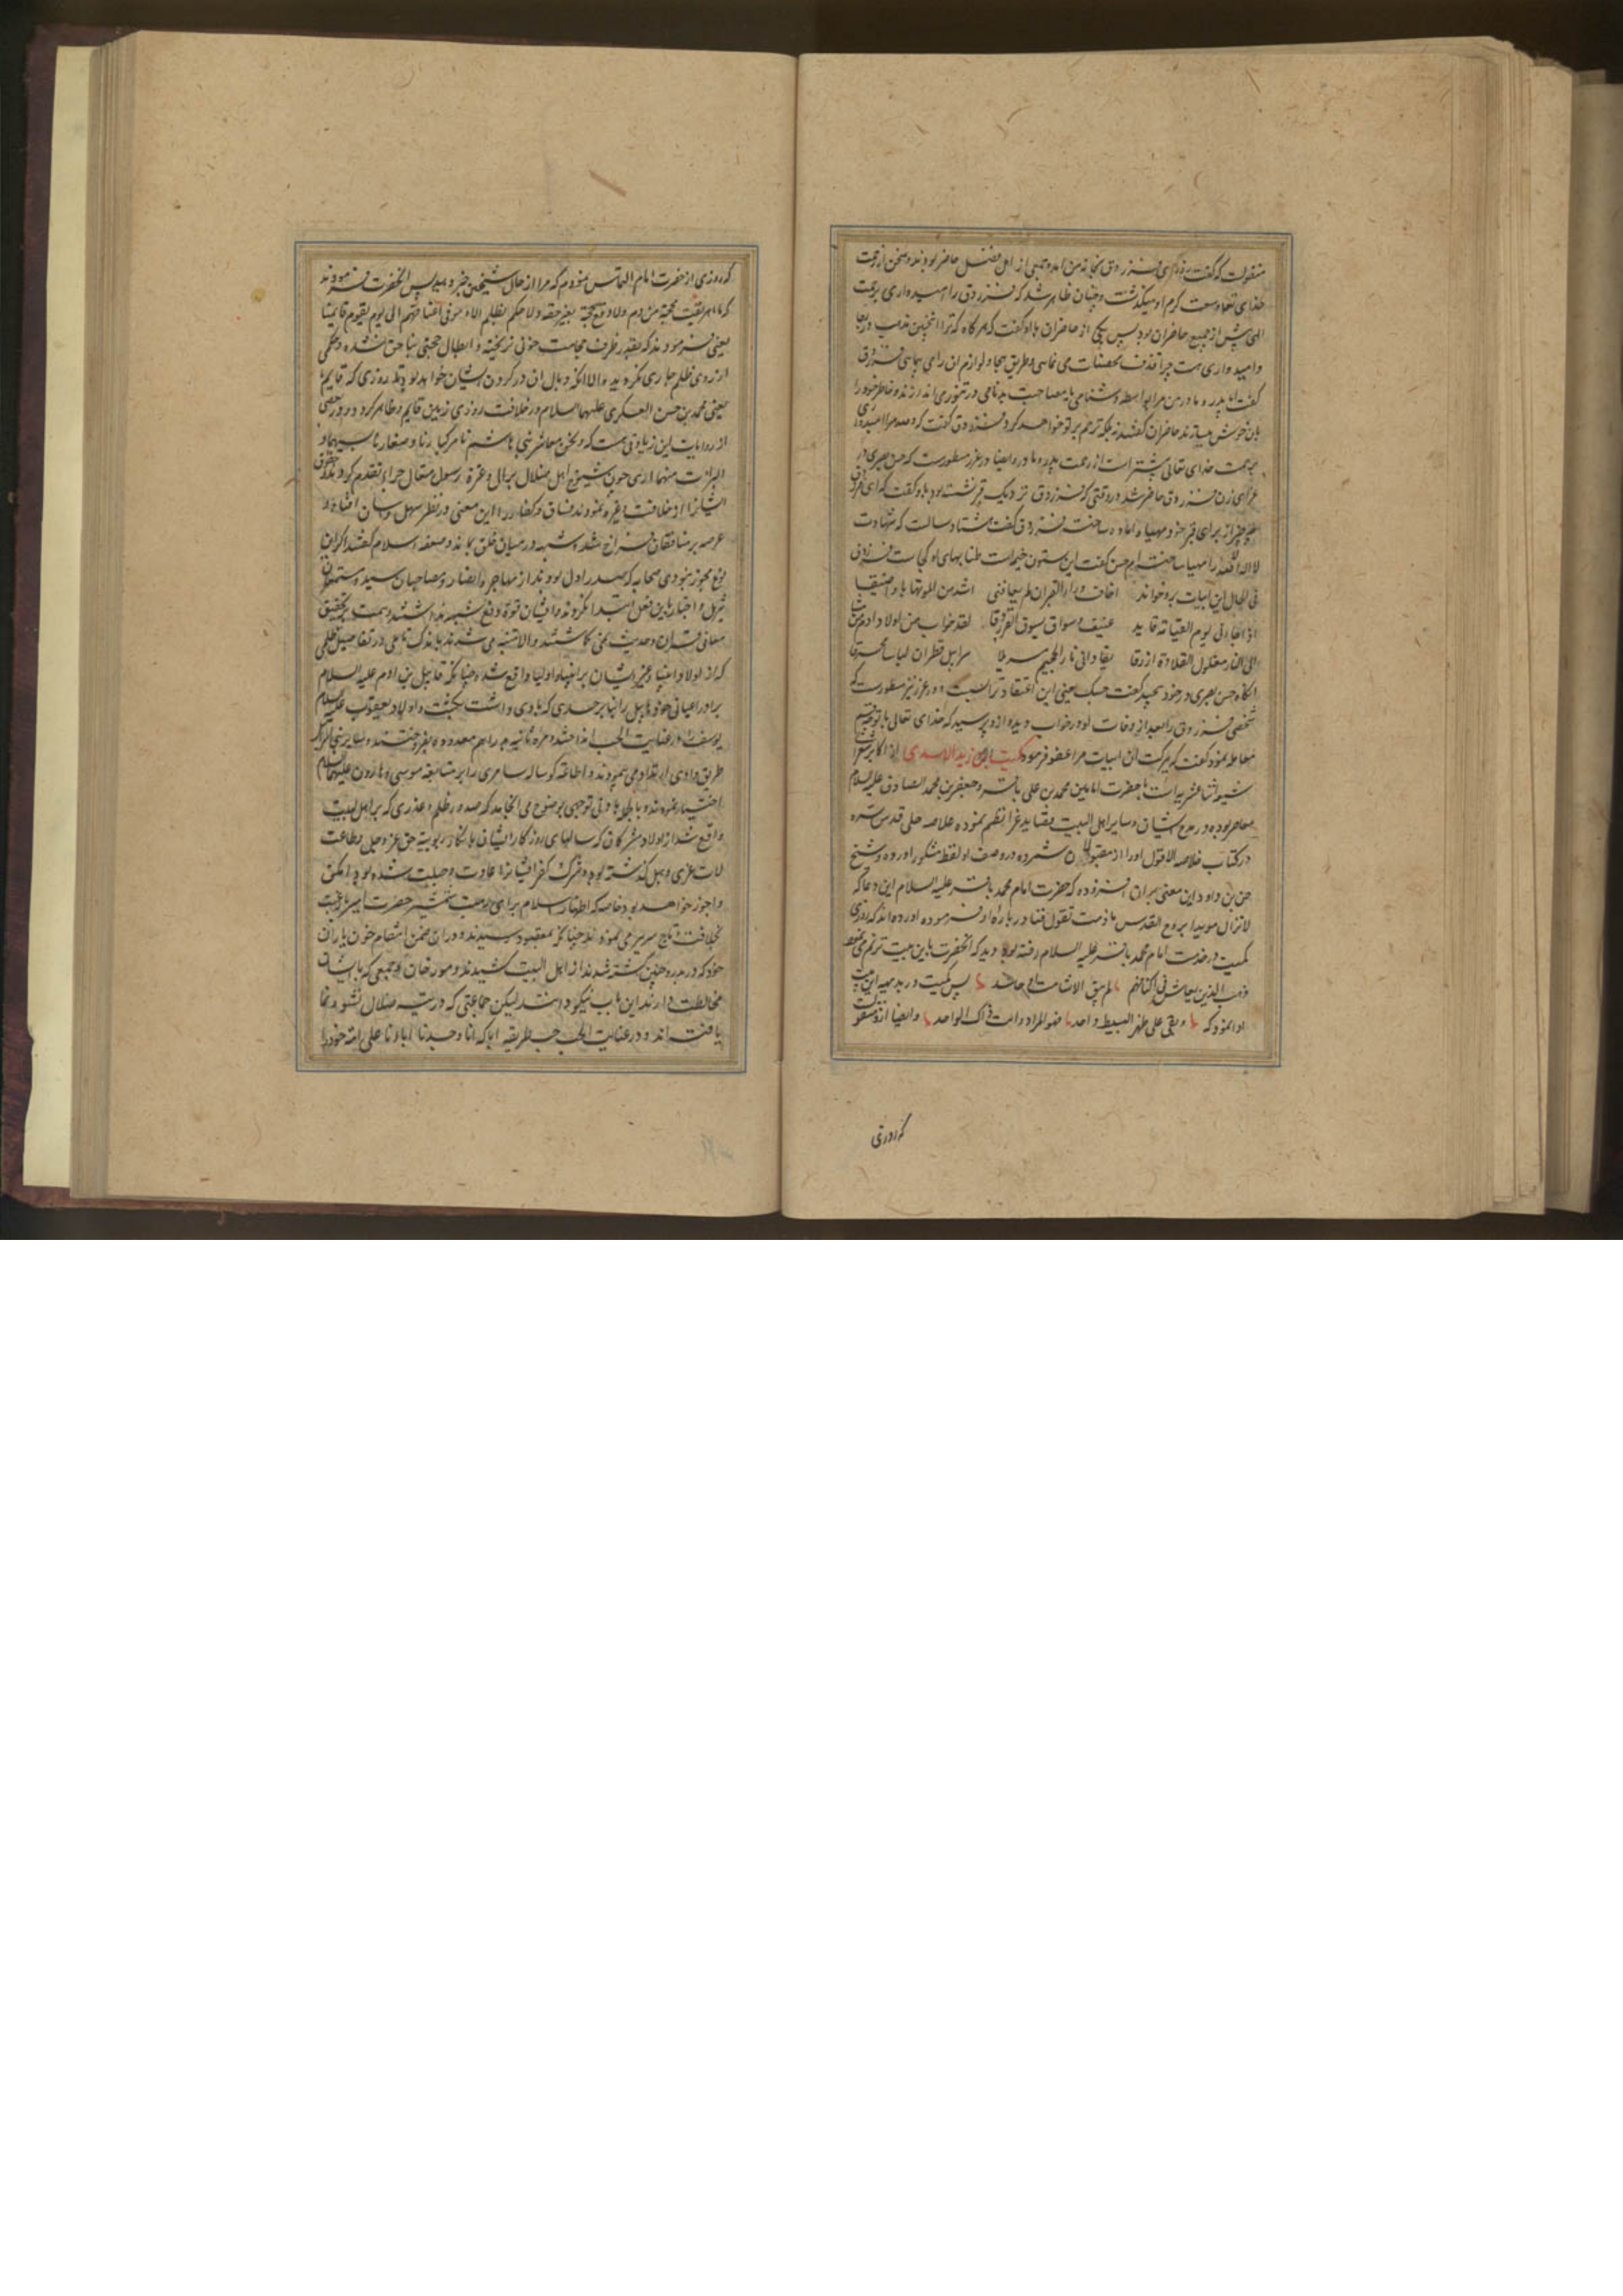 منقولست که گفت روزی فرزدق بخانه من امد و جمعی از اهل فضل حاضر بودند و سخن از رحمت
خدای تعالی وسعت کرم او میگذشت و چنان ظاهر شد که فرزدق را امیدواری برحمت
الهی پیش از جمیع حاضران بود پس یکی از حاضران با او گفت که هرکاه که ترا اینچنین
و امیدواری هست چرا قذف محصنات می نمائی و طریق هجا و لوازم ان را می پیمائی فرزدق
گفت ایا پدر و مادر من مرا بواسطه در تنوری اندازند و خاطر خود را
بان خوش میسازند حاضران گفتند نه بلکه ترحم بر تو خواهند کرد فرزدق گفت که
برحمت خدای تعالی بیشتر است از رحمت پدر و مادر و ایضا در غرر مسطورست که حسن بصری در
عزای زن فرزدق حاضر شد در وقتی که فرزدق نزدیک قبر نشسته بود با او گفت که ای
چه چیز از برای قبر خود مهیا و اماده ساخته فرزدق گفت هشتاد سالست که شهادت
لا اله الا الله را مهیا ساخته ام حسن گفت این ستون خیمه است طنابهای او کجاست فرزدق
فی الحال این ابیات برو خواند اخاف وراء القبر ان لم یعافنی اشد من الموت التهابا و اضیقا
اذا جاءنی یوم القیامة قاید عنیف و سواق یسوق الفرزدقا لقد خاب من اولاد ادم من مشی
الی النار مغلول القلادة ازرقا یقاد الی نار الجحیم مسربلا سرابیل قطران لباسا محرقا
انکاه حسن بصری در خود پیچید گفت حسبک یعنی این اعتقاد ترا بس است و در غرر نیز مسطورست که
شخصی فرزدق را بعد از وفات او در خواب دیده ازو پرسید که خدای تعالی با تو چه
معامله نمود گفت که ببرکت ان ابیات مرا عفو فرمود کمیت ابن زید الاسدی از اکابر شعرا
شیعه اثنا عشریه است با حضرت امامین محمد بن علی باقر و جعفر بن محمد الصادق علیه السلام
معاصر بوده در مدح ایشان و سایر اهل البیت قصاید غرا نظم نموده علامه حلی قدس سره
در کتاب خلاصة الاقوال او را از مقبولان شمرده در وصف او لفظ مشکور اورده و شیخ
حسن بن داود این معنی بر ان افزوده که حضرت امام محمد باقر علیه السلام این دعا که
لا تزال مویدا بروح القدس ما دمت تقول فینا در باره او فرموده اورده اند که روزی
کمیت در خدمت امام محمد باقر علیه السلام رفته بود دید که انحضرت باین بیت ترنم می نمود
ذهب الذین یعاش فی اکنافهم لم یبق الا شامت او حاسد پس کمیت در بدیهه این بیت
ادا نمود که و بقی علی ظهر البسیط واحد فهو المراد و انت ذاک الواحد و ایضا ازو منقول
که روزی
که روزی از حضرت امام التماس نمودم که مرا از حال شیخین خبر دهید پس انحضرت فرمودند
که ما اهریقت محجمة من دم ولا وقع حجة بغیر حقه ولا حکم بظلم الا و هو فی اعناقهم الی یوم یقوم قایمنا
یعنی فرمودند که بقدر ظرف حجامت خونی نریخته و ابطال حجتی بنا حق نشده و حکمی
از روی ظلم جاری نکردیده الا انکه وبال ان در کردن ایشان خواهد بود تا روزی که قایم ما
یعنی محمد بن حسن العسکری علیهما السلام در خلافت روزی زمین قایم و ظاهر کردد و در بعضی
از روایات این زیادتی هست که و نحن معاشر بنی هاشم نامر کبارنا و صغارنا بسبهما و
البرائة منهما اری چون شیوخ اهل ضلال بر ال و عترة رسول متعال جراءت تقدم کردند و حقوق
ایشانرا از خلافت و غیره نمودند فساق و کفار را این معنی در نظر سهل و اسان افتاد و
عرصه بر منافقان فراخ شد و شبهه در میان خلق بماند و ضعفه اسلام گفتند اکر این
نوع مجوز نبودی صحابه که صدر اول بودند از مهاجر و انصار و مصاحبان سید و مستمعان
تنزیل و اخبار باین فعل ابتدا نکردندی و ایشان قوة دفع شبهه نداشتند و همت بر تحقیق
معانی قران و حدیث نمی کماشتند و الا متنبه می شدند باندک تاملی در تفاصیل ظلمی
که از اولاد انبیا و غیر ایشان بر انبیا و اولیا واقع شد چنانکه قابیل بن ادم علیه السلام
برادر اعیانی خود هابیل را بنابر حسدی که با وی داشت بکشت و اولاد یعقوب علیه السلام
یوسف را در غیابت الجب انداختند و مرة ثانیه بدراهم معدوده بفروختند
طریق وادی ارتداد می پیمودند و اطاعت کوساله سامری را بر متابعة موسی و هارون علیهما السلام
اختیار نمودند و بادنی توجهی بوضوح می انجامد که صدور ظلم و غدری که بر اهل بیت
واقع شد از اولاد مشرکان که سالهای روزکار ایشان بانکار ربوبیت حق عز و جل و طاعت
لات و عزی و هبل کذشته بود و شرک و کفر ایشانرا عادت و جبلت شده بود امکن
و اجوز خواهد بود خاصه که اظهار اسلام برای رهبت شمشیر حضرت امیر
بخلافت و تاج سریر می نمودند چنانکه بمقصود رسیدند و در ان ضمن انتقام خون یاران
خود که در بدر و حنین کشته شدند از اهل البیت کشیدند و مورخان و جمعی که با ایشان
مخالطت دارند این باب نیکو دانند لیکن جماعتی که در تیه ضلال نشو و نما
یافته اند و در غیابت الجب بطریقه اباء که انا وجدنا اباءنا علی امة خود را